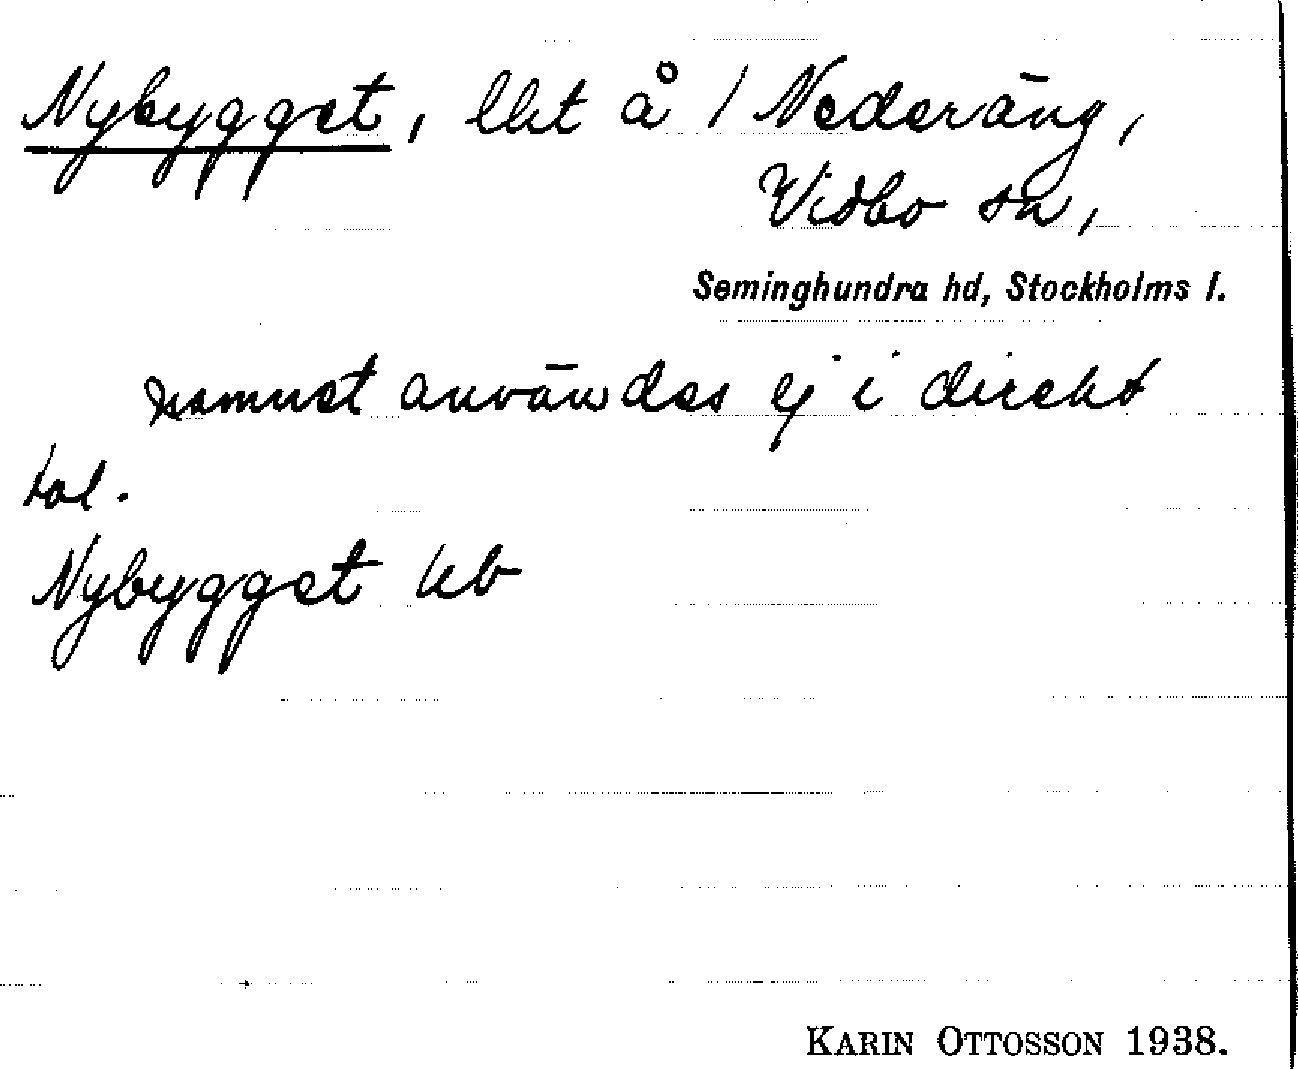 Nybygget, lht å 1 Nederäng,
Vidbo sn,
Seminghundra hd, Stockholms l.
namnet användes ej i direkt
tal.
Nybygget kb
KARIN OTTOSSON 1938.